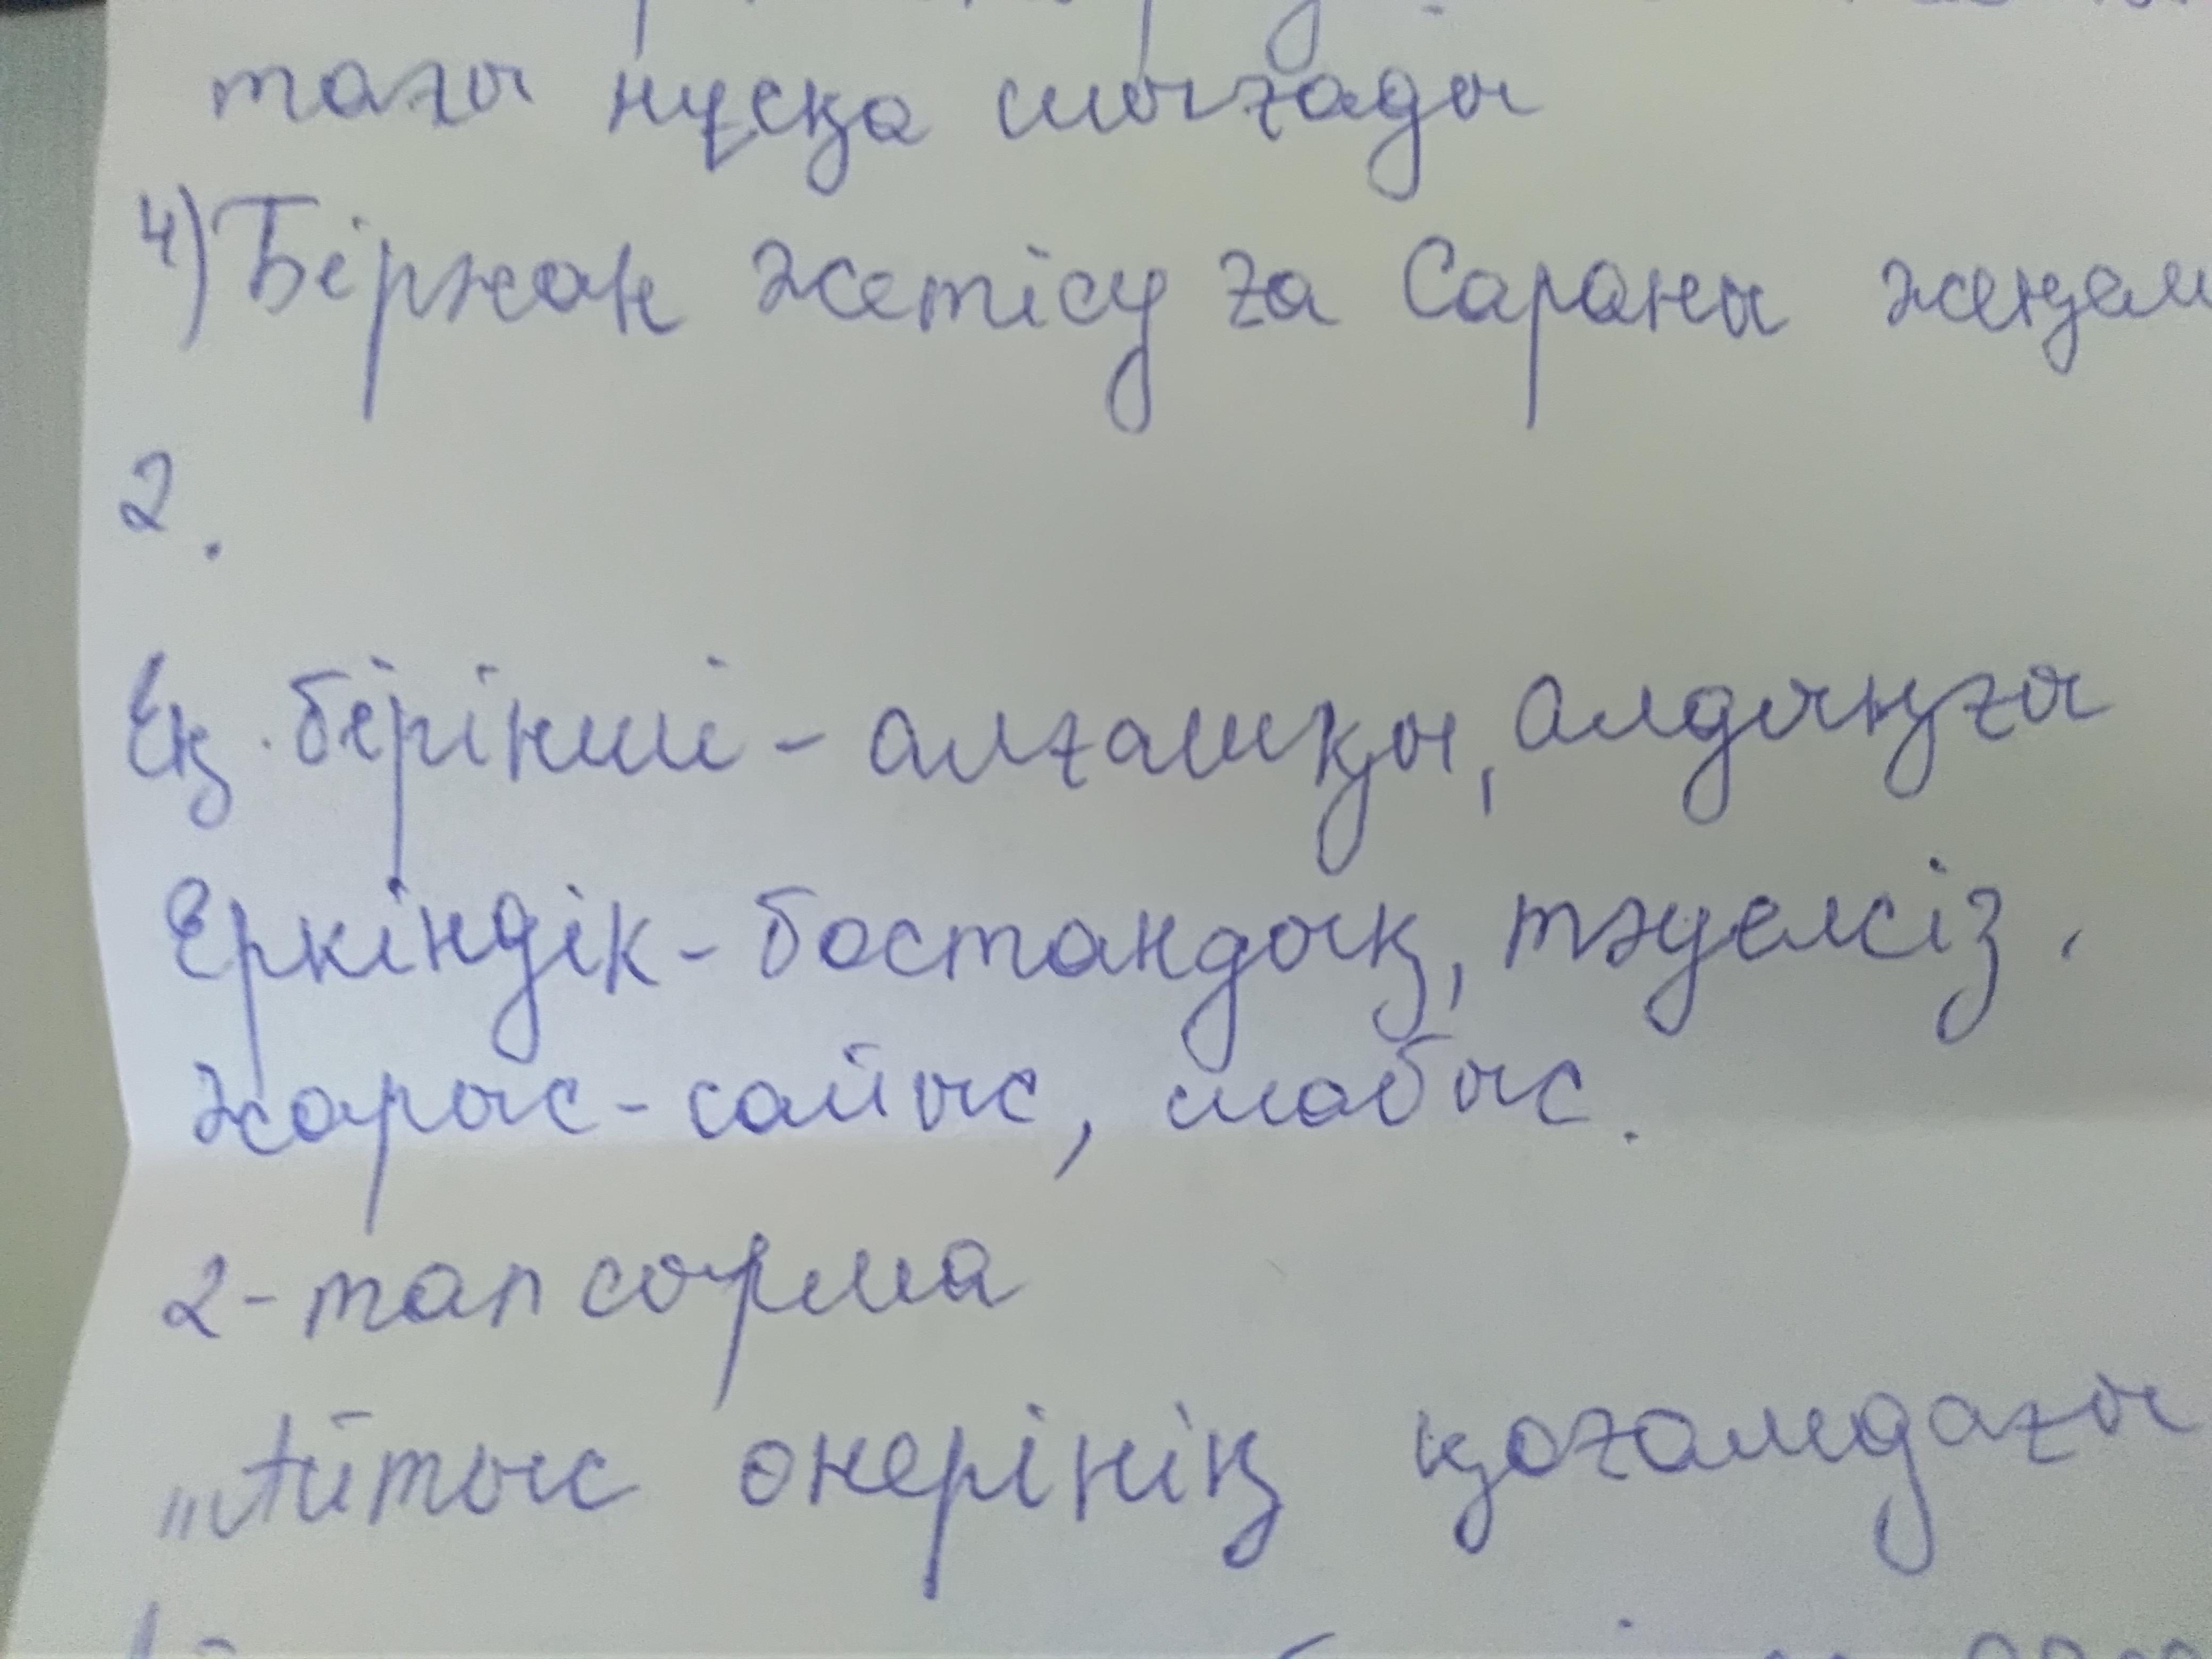 тағы нұсқа шығады
4) Біржан Жетісу ға Сараны
2.
Ең бірінші - алғашқы, алдыңғы
Еркіндік - бостандық, тәуелсіз.
Жарыс - сайыс, шабыс.
2-тапсырма
„Айтыс өнерінің қоғамдағы